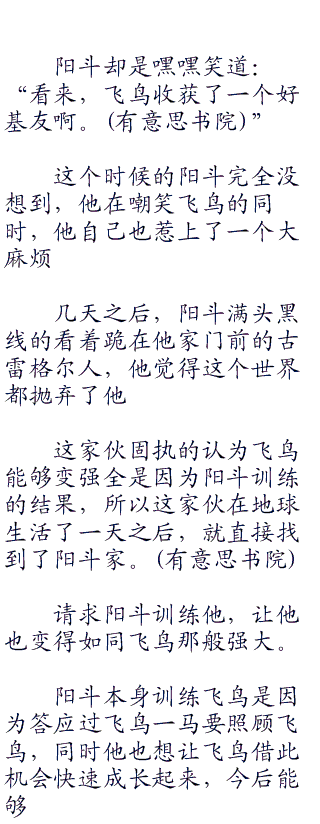 阳斗却是嘿嘿笑道：
“看来，飞鸟收获了一个好
基友啊。(有意思书院)”
这个时候的阳斗完全没
想到，他在嘲笑飞鸟的同
时，他自己也惹上了一个大
麻烦
几天之后，阳斗满头黑
线的看着跪在他家门前的古
雷格尔人，他觉得这个世界
都抛弃了他
这家伙固执的认为飞鸟
能够变强全是因为阳斗训练
的结果，所以这家伙在地球
生活了一天之后，就直接找
到了阳斗家。(有意思书院)
请求阳斗训练他，让他
也变得如同飞鸟那般强大。
阳斗本身训练飞鸟是因
为答应过飞鸟一马要照顾飞
鸟，同时他也想让飞鸟借此
机会快速成长起来，今后能
够